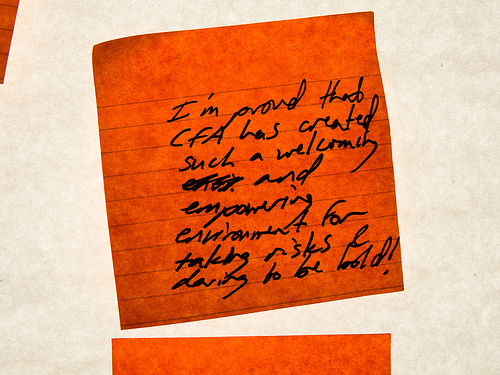 I'm proud that
CFA has created
such a welcoming
and
empowering
environment for
taking risks &
daring to be bold!